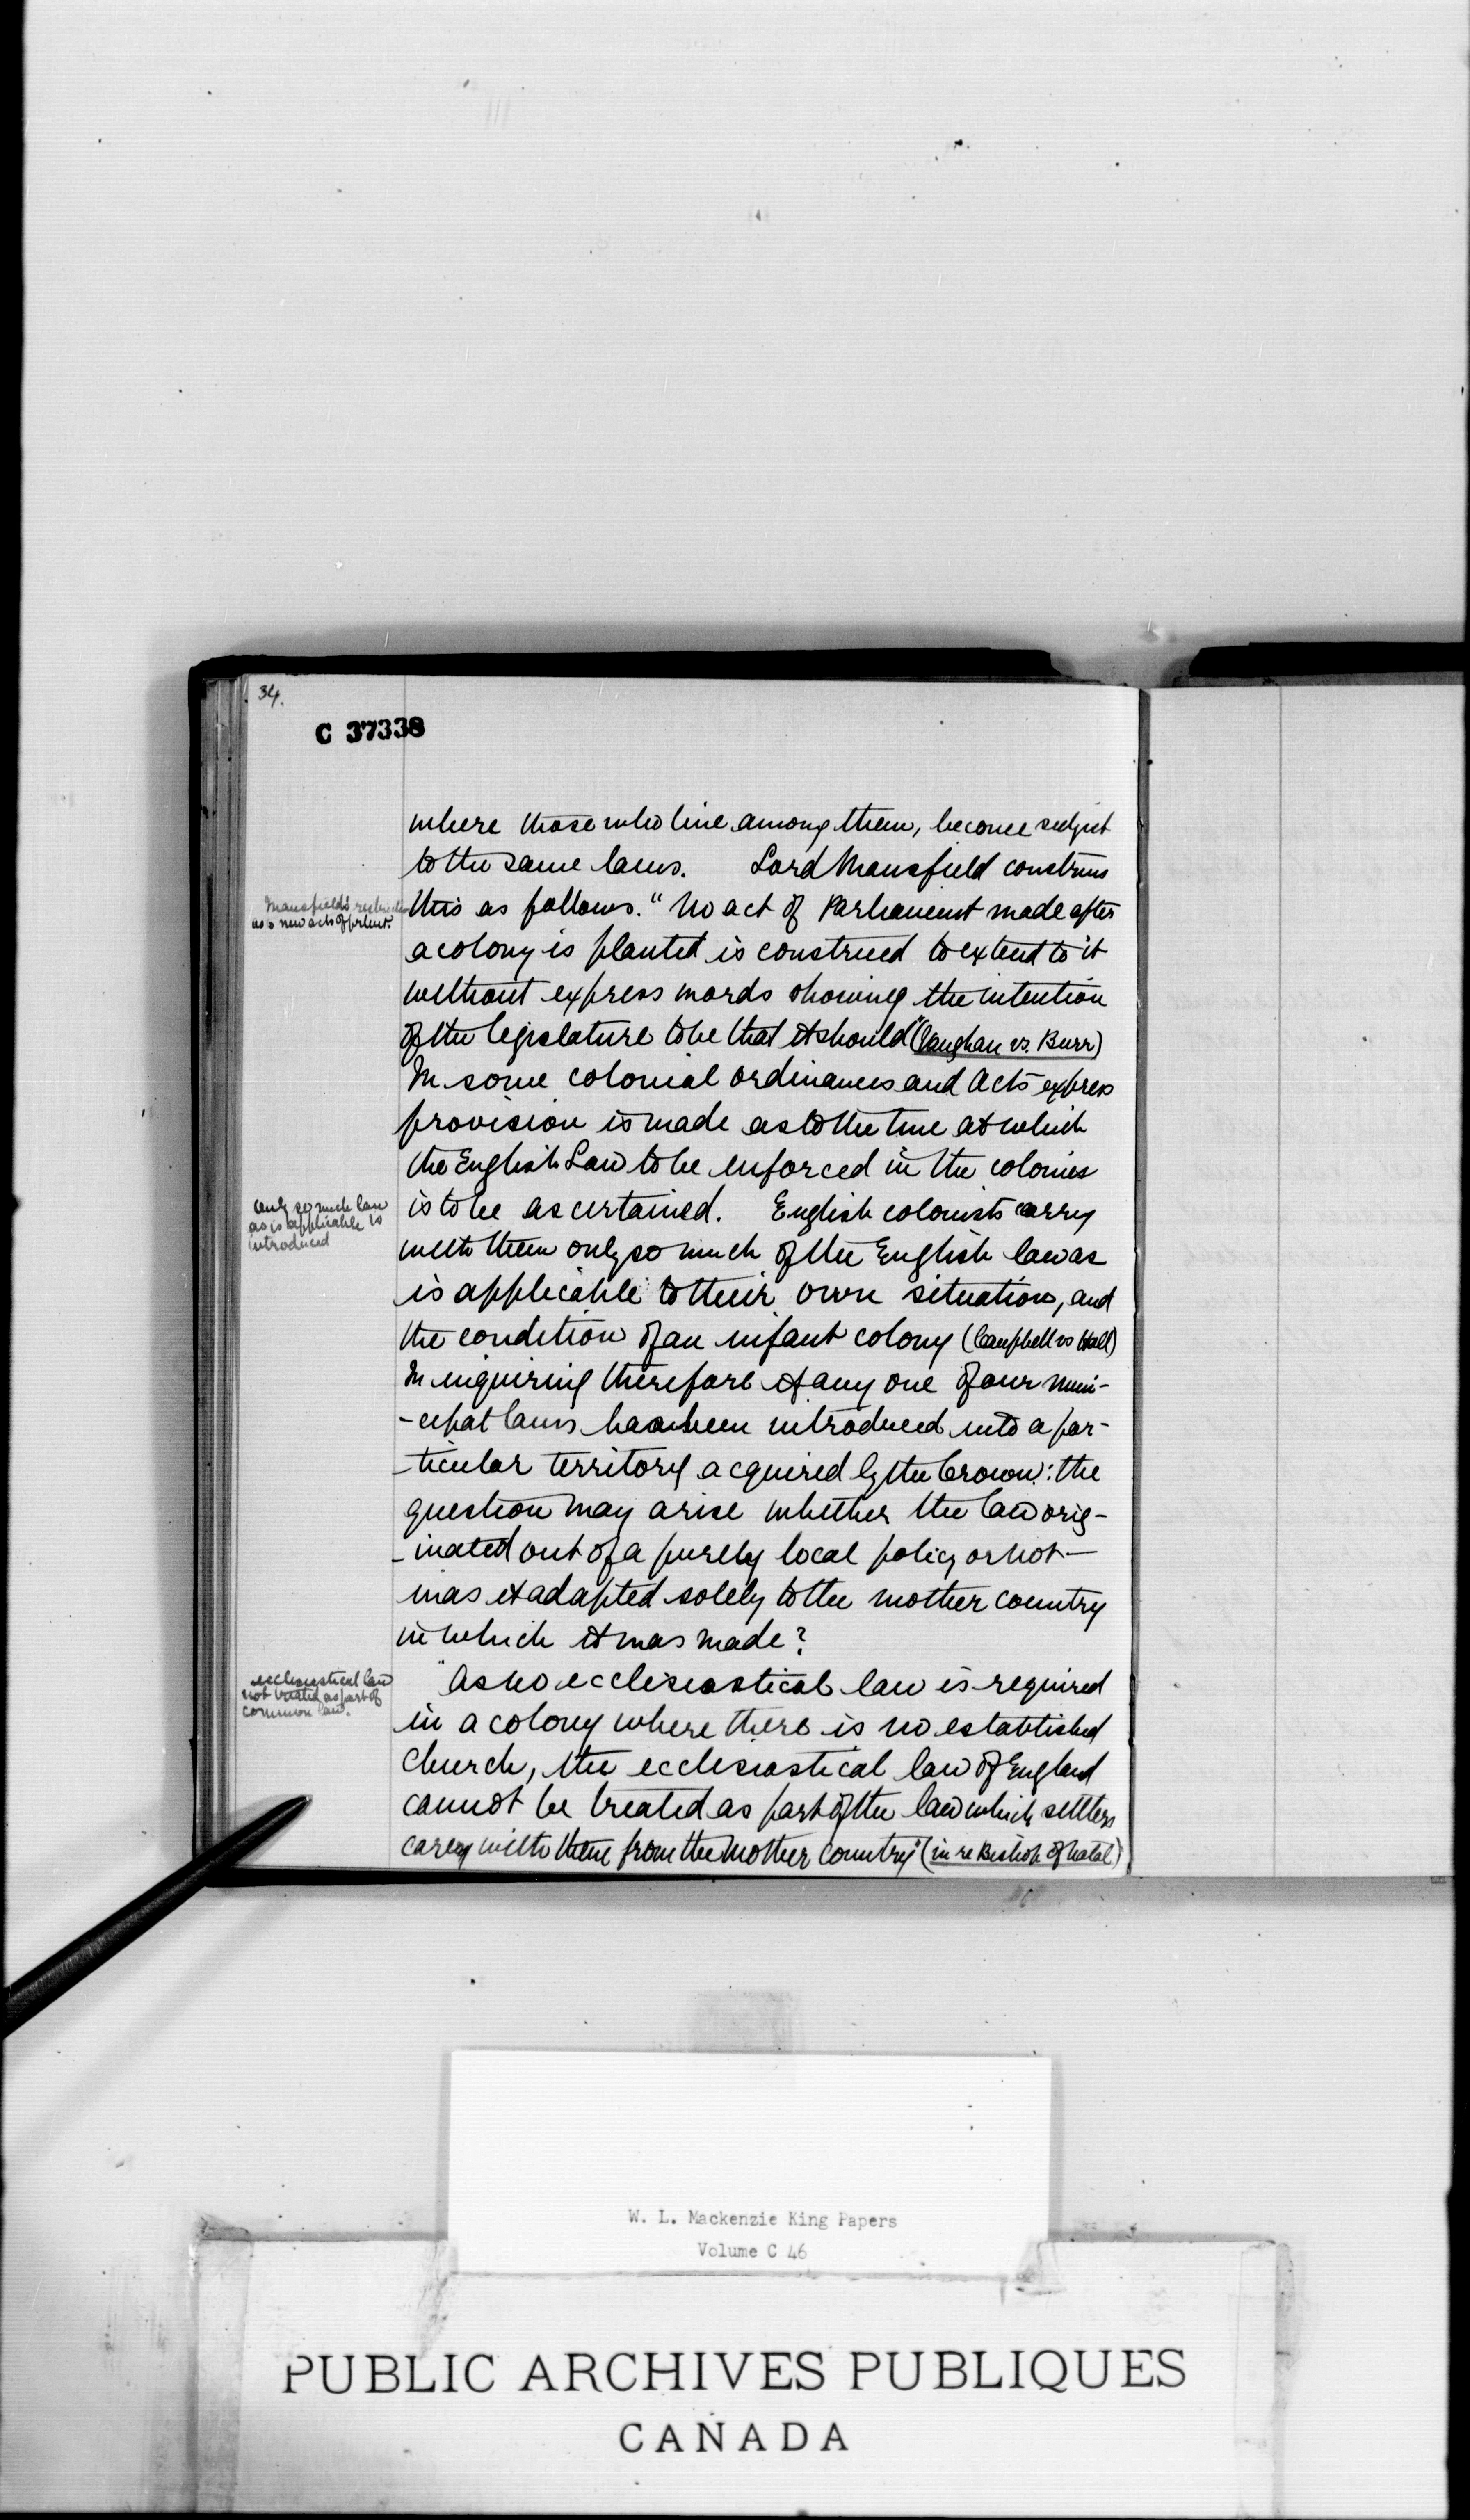 34.
C 37338
where those who live among them, become subject
to the same laws. Lord Mansfield construes
Mansfield's
as to new acts of prlmt.
this as follows. "No act of Parliament made after
a colony is planted is construed to extend to it
without express words showing the intention
of the legislature to be that it should" (Vaughan vs. Burr)
In some colonial ordinances and Acts express
provision is made as to the time at which
the English Law to be enforced in the colonies
only so much law
as is applicable is
introduced
is to be ascertained. English colonists carry
with them only so much of the English law as
is applicable to their own situation, and
the condition of an infant colony (Campbell vs Hall)
In inquiring therefore if any one of our muni-
-cipal laws has been introduced into a par-
-ticular territory acquired by the Crown: the
question may arise whether the law orig-
-inated out of a purely local policy or not—
was it adapted solely to the mother country
in which it was made?
ecclesiastical law
not treated as part of
common law.
"As no ecclesiastical law is required
in a colony where there is no established
church, the ecclesiastical law of England
cannot be treated as part of the law which settlers
carry with them from the mother country" (in re Bishop of Natal)
W. L. Mackenzie King Papers
Volume C 46
PUBLIC ARCHIVES PUBLIQUES
CANADA